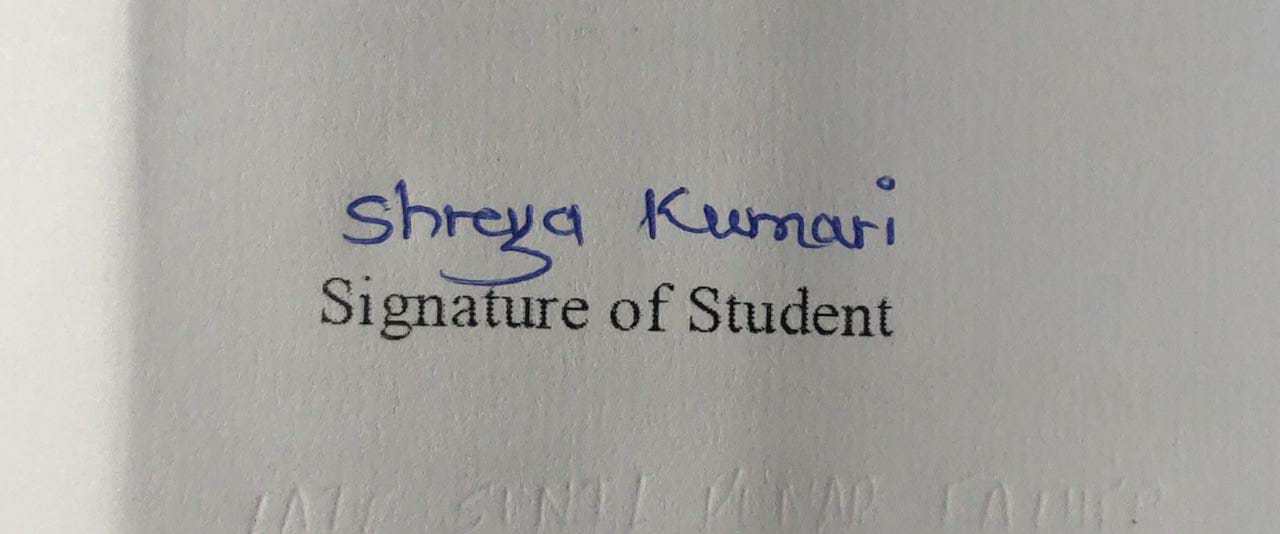 Shreya Kumari
Signature of Student